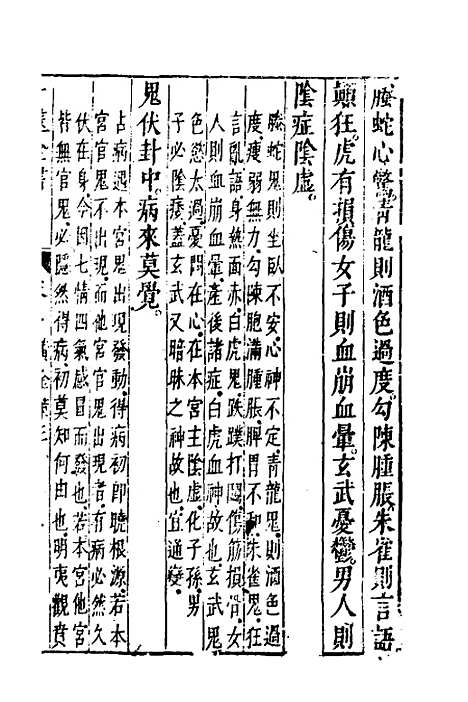 螣蛇心驚青龍則酒色過度勾陳腫脹朱雀則言語
顛狂虎有損傷女子則血崩血暈玄武憂鬱男人則
陰症陰虛
螣蛇鬼則坐臥不安心神不定青龍鬼則酒色過
度瘦弱無力勾陳胞滿腫脹脾胃不和朱雀鬼狂
言亂語身熱面赤白虎鬼跌蹼打鬪傷筋損骨女
人則血崩血暈產後諸症白虎血神故也玄武鬼
色慾太過憂悶在心在本宮主陰虛化子孫男
子必陰痿蓋玄武又暗昧之神故也宜通變
鬼伏卦中病來莫覺
占病遇本宮鬼出現發動得病初即曉根源若本
宮官鬼不出現而他宮官鬼出現者有病必然久
伏在身今因七情四氣感冒而發也若本宮他宮
皆無官鬼必隱然得病初莫知何由也明夷觀賁